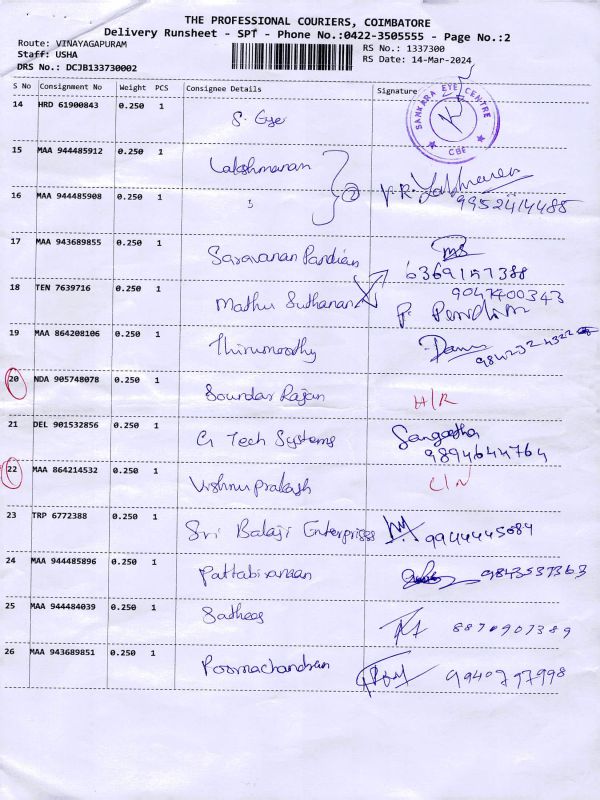 THE PROFESSIONAL COURIERS, COIMBATORE
Delivery Runsheet - SPT - Phone No.:0422-3505555 - Page No.:2
Route: VINAYAGAPURAM
RS No.: 1337300
Staff: USHA
RS Date: 14-Mar-2024
DRS No: DCJB133730002
S No Consignment No Weight PCS Consignee Details Signature
14 HRD 61900843 0.250 1 S. Eye SANKARA EYE CENTRE CBE
15 MAA 944485912 0.250 1 Lakshmanan
16 MAA 944485908 0.250 1 2 V.R. 9952414488
17 MAA 943689855 0.250 1 Saravanan Pandian 6369157388
18 TEN 7639716 0.250 1 Mathu Suthanan 9047400343
19 MAA 864208106 0.250 1 Thirumoorthy
20 NDA 905748078 0.250 1 Soundar Rajan H/R
21 DEL 901532856 0.250 1 G Tech Systems Sangeetha 9894644764
22 MAA 864214532 0.250 1 Vishnu prakash
23 TRP 6772388 0.250 1 Sri Balaji Enterprises 9944445084
24 MAA 944485896 0.250 1 Pattabiraman 9843537363
25 MAA 944484039 0.250 1 Sathees 8870907389
26 MAA 943689851 0.250 1 Poornachandran 9940797998